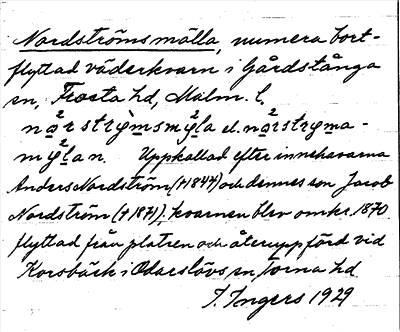 Nordströms mölla, numera bort-
flyttad väderkvarn i Gårdstånga
sn, Frosta hd, Malm. l,
nǫ²rstrỳmsmy̨²la el. nǫ²rstryma-
my̨²lan. Uppkallad efter innehavarna
Anders Nordström (†1844) och dennes son Jacob
Nordström (†1871). kvarnen blev omkr. 1870
flyttad från platsen och återuppförd vid
Korsbäck i Odarslövs sn, Torna hd
I. Ingers 1929